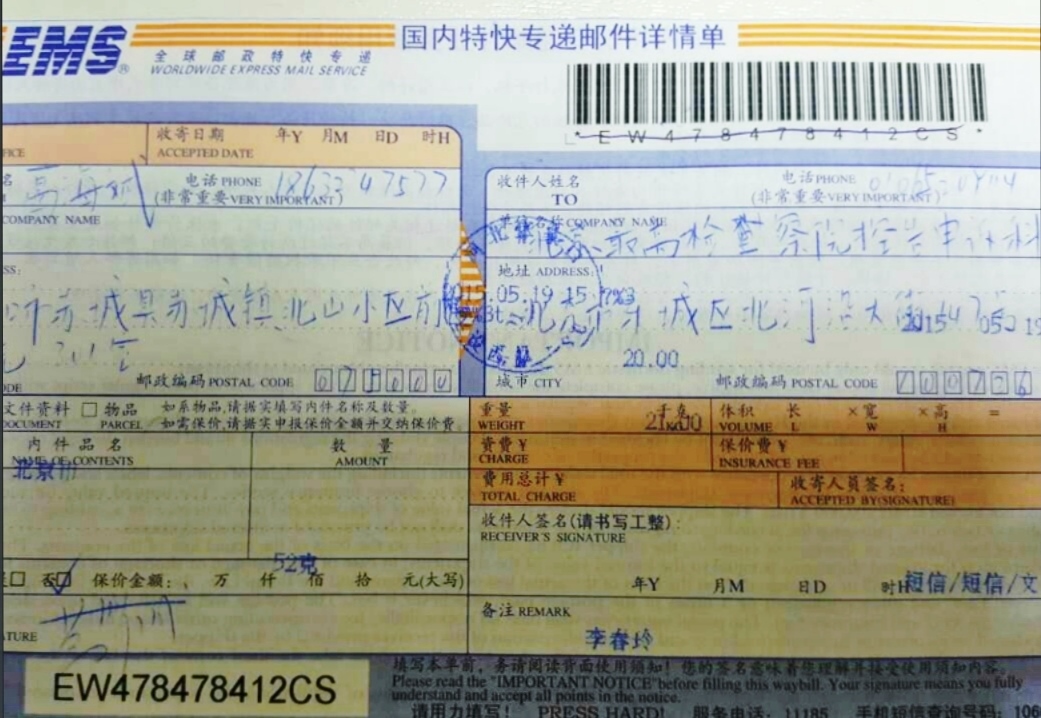 EMS®
全球邮政特快专递
WORLDWIDE EXPRESS MAIL SERVICE
国内特快专递邮件详情单
*EW478478412CS*
收寄日期 年Y 月M 日D 时H
ACCEPTED DATE
名 高海 电话PHONE 1863347577
(非常重要VERY IMPORTANT)
COMPANY NAME
城镇北山小区
邮政编码 POSTAL CODE 075000
收件人姓名 电话PHONE
TO (非常重要VERY IMPORTANT)
单位名称COMPANY NAME
最高检查察院控告申诉科
地址 ADDRESS:
05.19 15
北京市东城区北河沿大街
20.00
城市 CITY 邮政编码 POSTAL CODE 100726
文件资料 □ 物品 如系物品,请据实填写内件名称及数量。
DOCUMENT PARCEL 如需保价,请据实申报保价金额并交纳保价费。
内件品名 数量
NAME OF CONTENTS AMOUNT
北京
52克
否 保价金额: 万 仟 佰 拾 元(大写)
TURE
重量
WEIGHT
体积 长 ×宽 ×高 =
VOLUME L W H
资费¥ 保价费¥
CHARGE INSURANCE FEE
费用总计¥ 收寄人员签名:
TOTAL CHARGE ACCEPTED BY(SIGNATURE)
收件人签名(请书写工整):
RECEIVER'S SIGNATURE
年Y 月M 日D 时H 短信/短信/文
备注 REMARK
李春玲
EW478478412CS
填写本单前，务请阅读背面使用须知！您的签名意味着您理解并接受使用须知内容。
Please read the "IMPORTANT NOTICE"before filling this waybill. Your signature means you fully
understand and accept all points in the notice.
请用力填写! PRESS HARD! 服务电话: 11185 手机短信查询号码: 106